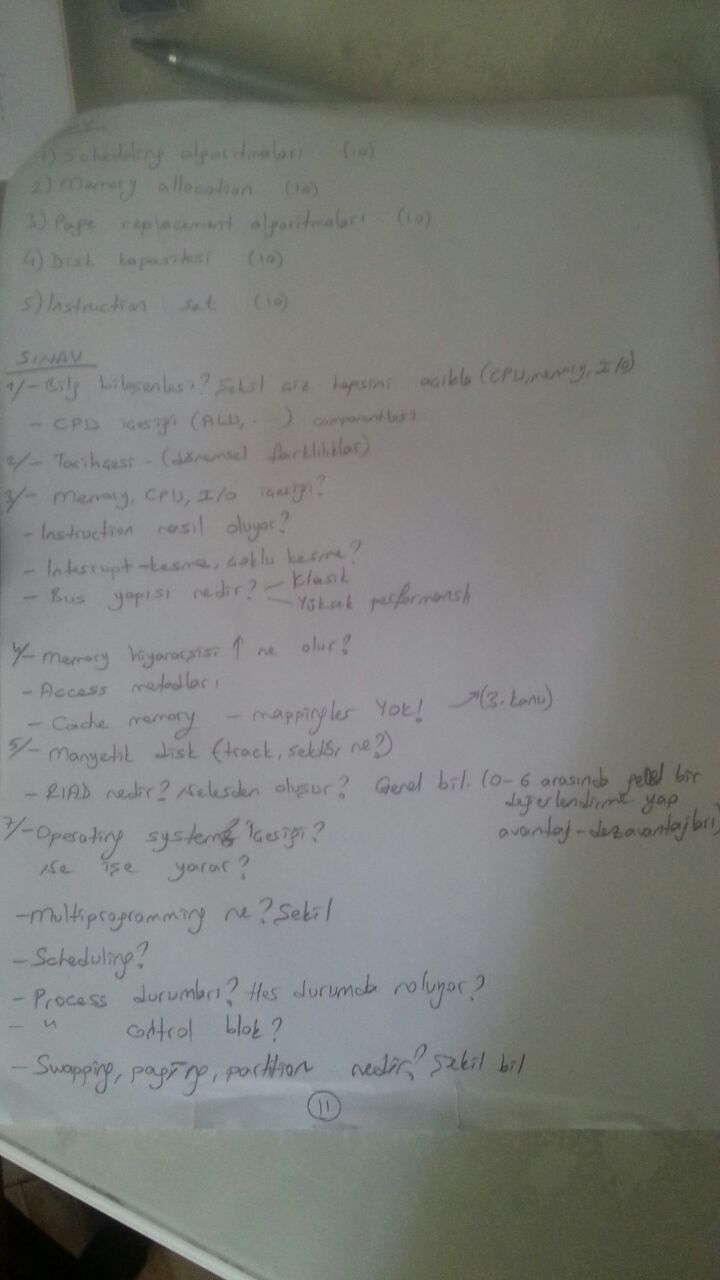 1) Scheduling algoritmaları (10)
2) Memory allocation (10)
3) Page replacement algoritmaları (10)
4) Disk kapasitesi (10)
5) Instruction set (10)
SINAV
1/- Bilg bileşenleri? Şekil çiz hepsini açıkla (CPU, memory, I/O)
- CPU içeriği (ALU, ...) componentleri
2/- Tarihçesi - (dönemsel farklılıklar)
3/- Memory, CPU, I/O içeriği?
- Instruction nasıl oluyor?
- Interrupt-kesme, çoklu kesme?
- Bus yapısı nedir? Klasik
Yüksek performanslı
4/- Memory hiyararşisi ↑ ne olur?
- Access metodları
- Cache memory - mappingler YOK! → (3. konu)
5/- Manyetik disk (track, sektör ne?)
- RIAD nedir? Nelerden oluşur? Genel bil. (0-6 arasında genel bir
değerlendirme yap
avantaj-dezavantajları)
7/- Operating system içeriği?
Ne işe yarar?
- Multiprogramming ne? Şekil
- Scheduling?
- Process durumları? Her durumda noluyor?
- " control blok?
- Swapping, paging, partition nedir? Şekil bil
11